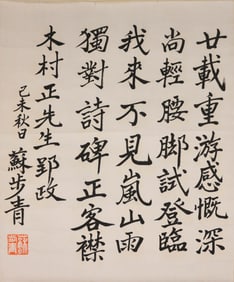 廿載重游感慨深
尚輕腰脚試登臨
我來不見嵐山雨
獨對詩碑正客襟
木村正先生郢政
己未秋日
蘇步青